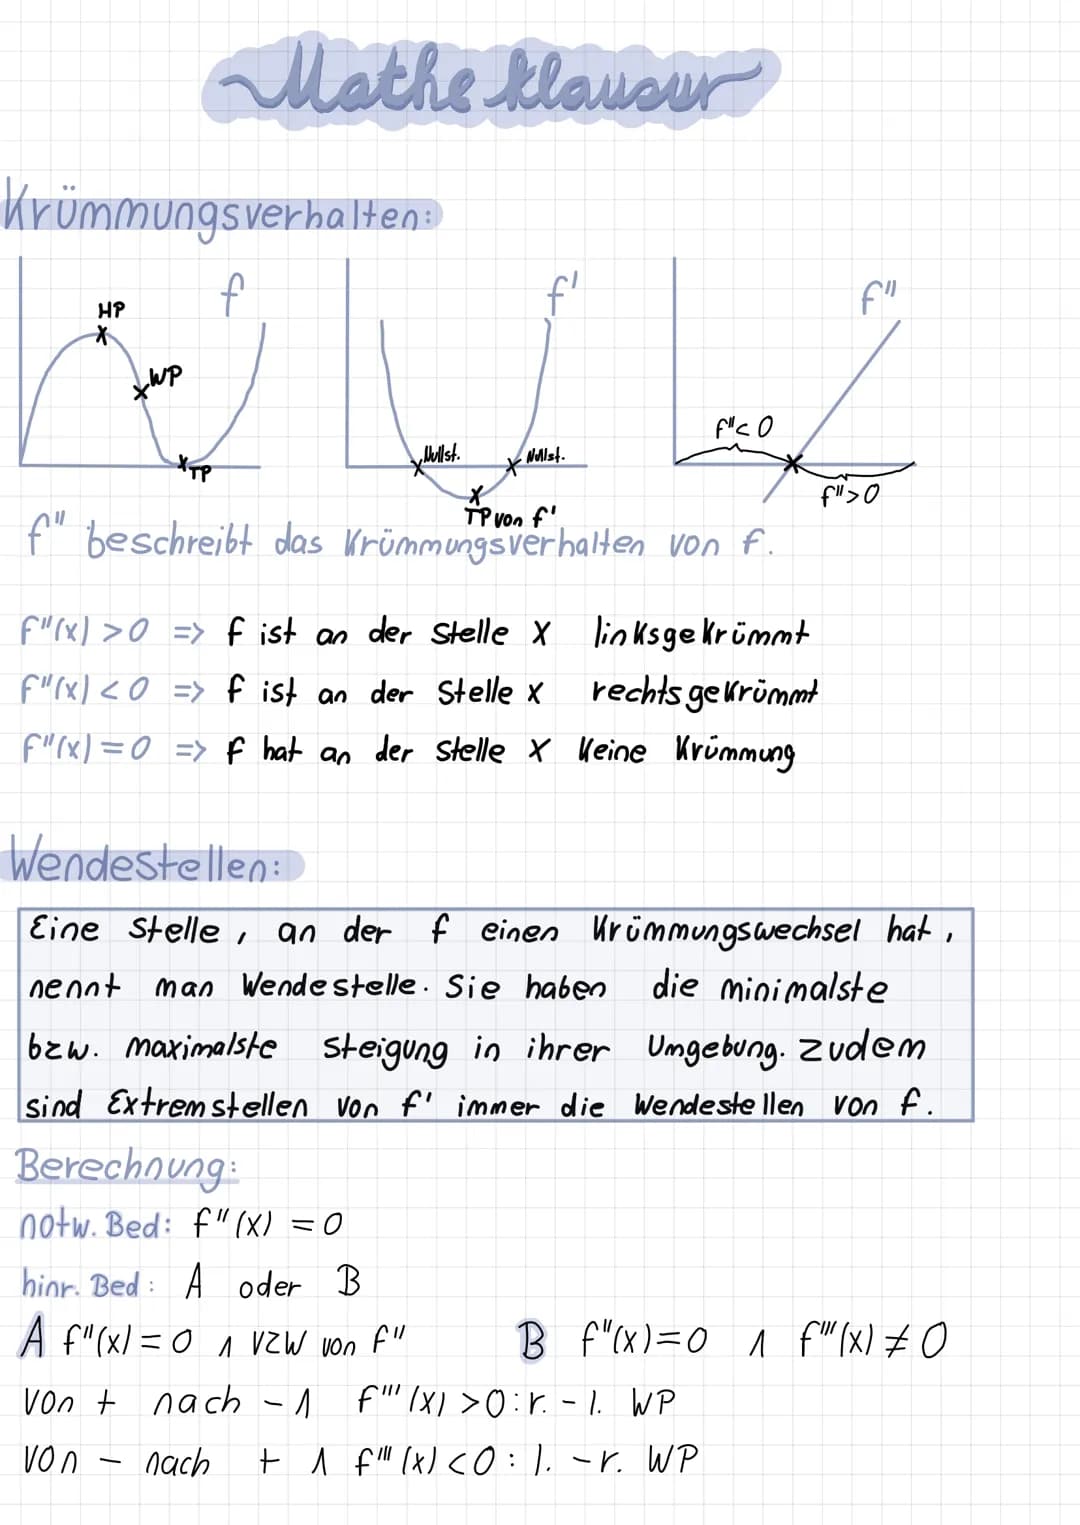 Mathe klausur
Krümmungsverhalten:
f
HP
WP
TP
f'
Nullst.
Nullst.
TP von f'
f''
f''<0
f''>0
f'' beschreibt das Krümmungsverhalten von f.
f''(x) >0 => f ist an der Stelle x linksgekrümmt
f''(x) <0 => f ist an der Stelle x rechtsgekrümmt
f''(x) =0 => f hat an der Stelle x keine Krümmung
Wendestellen:
Eine Stelle, an der f einen Krümmungswechsel hat,
nennt man Wendestelle. Sie haben die minimalste
bzw. maximalste Steigung in ihrer Umgebung. Zudem
sind Extremstellen von f' immer die Wendestellen von f.
Berechnung:
notw. Bed: f''(x) =0
hinr. Bed: A oder B
A f''(x)=0 ∧ VZW von f'' B f''(x)=0 ∧ f'''(x)≠0
von + nach - ∧ f'''(x) >0: r. - l. WP
von - nach + ∧ f'''(x) <0: l. - r. WP